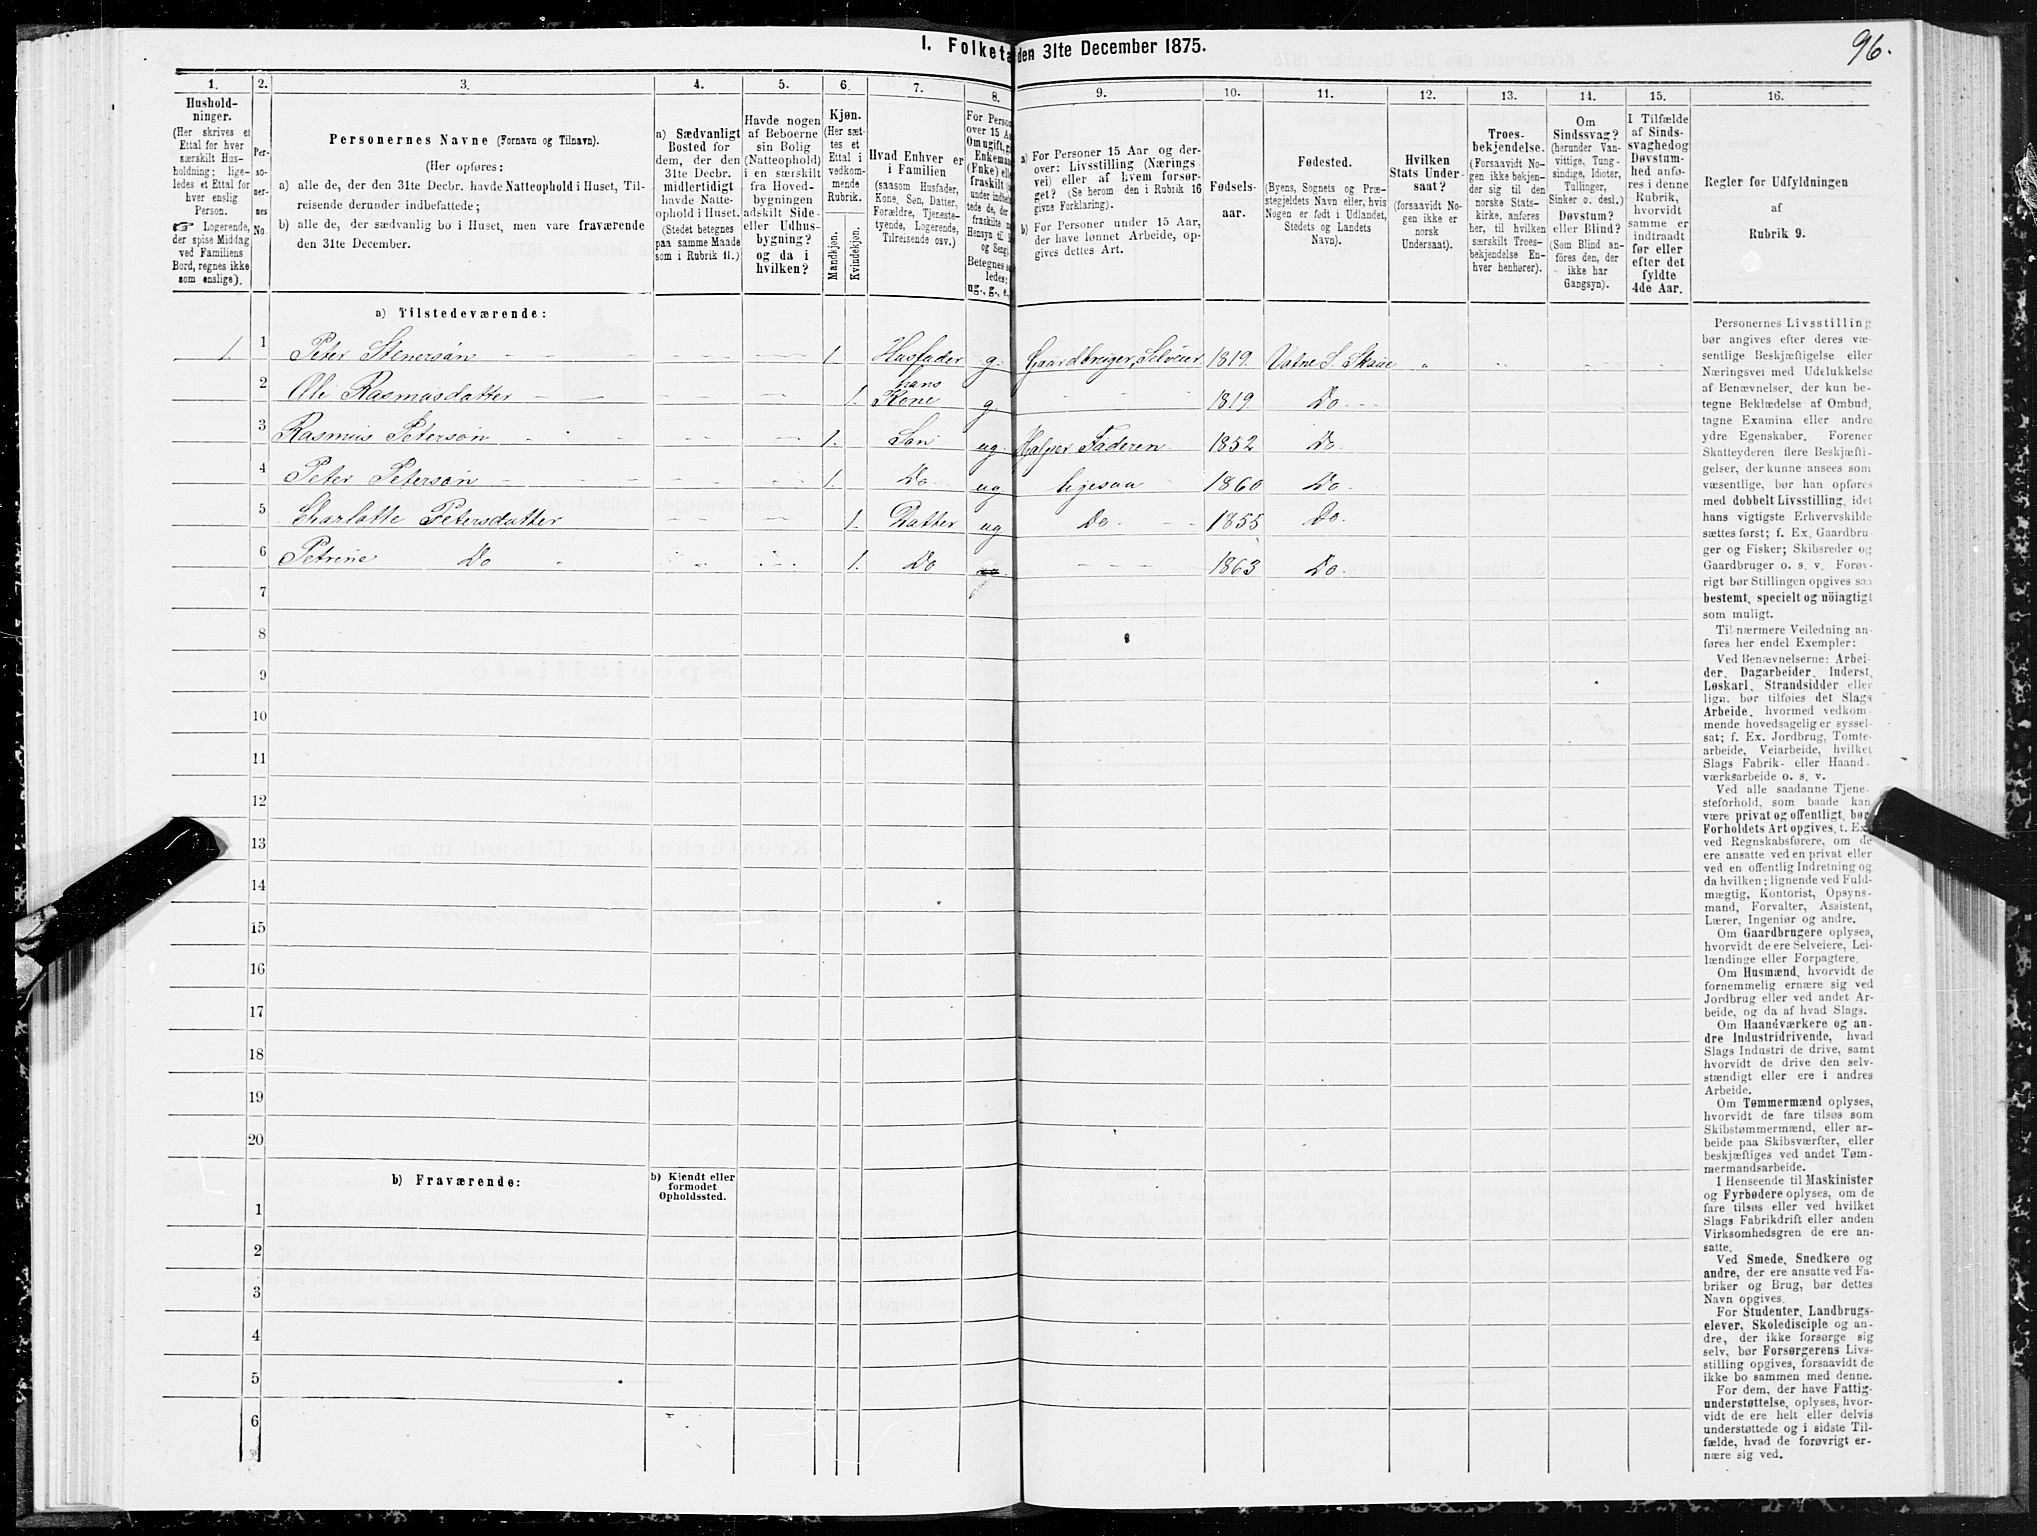 96.
1. Folketæ den 31te December 1875.
1. 2. 3. 4. 5. 6. 7. 8. 9. 10. 11. 12. 13. 14. 15. 16.
Hushold-
ninger.
(Her skrives et
Ettal for hver
særskilt Hus-
holdning; lige-
ledes et Ettal for
hver enslig
Person.
☞ Logerende,
der spise Middag
ved Familiens
Bord, regnes ikke
som enslige).
Per-
so-
ner-
nes
No.
Personernes Navne (Fornavn og Tilnavn).
(Her opføres:
a) alle de, der den 31te Decbr. havde Natteophold i Huset, Til-
reisende derunder indbefattede;
b) alle de, der sædvanlig bo i Huset, men vare fraværende
den 31te December.
a) Sædvanligt
Bosted for
dem, der den
31te Decbr.
midlertidigt
havde Natte-
ophold i Huset.
(Stedet betegnes
paa samme Maade
som i Rubrik 11.)
Havde nogen
af Beboerne
sin Bolig
(Natteophold)
i en særskilt
fra Hoved-
bygningen
adskilt Side-
eller Udhus-
bygning?
og da i
hvilken?
Kjøn.
(Her sæt-
tes et
Ettal i
vedkom-
mende
Rubrik.
Mandkjøn.
Kvindekjøn.
Hvad Enhver er
i Familien
(saasom Husfader,
Kone, Søn, Datter,
Forældre, Tjeneste-
tyende, Logerende,
Tilreisende osv.)
For Person
over 15 Aa
Om ugift, gi
Enkeman
(Enke) elle
fraskilt
under indbe
tede de, der
fraskilte
Hensyn til B
og Seng
Betegnes s
ledes:
ug., g., e.,
a) For Personer 15 Aar og der-
over: Livsstilling (Nærings-
vei) eller af hvem forsør-
get? (Se herom den i Rubrik 16
givne Forklaring).
b) For Personer under 15 Aar,
der have lønnet Arbeide, op-
gives dettes Art.
Fødsels-
aar.
Fødested.
(Byens, Sognets og Præ-
stegjeldets Navn eller, hvis
Nogen er født i Udlandet,
Stedets og Landets
Navn).
Hvilken
Stats Under-
saat?
(forsaavidt No-
gen ikke er
norsk
Undersaat).
Troes-
bekjendelse.
(Forsaavidt No-
gen ikke bekjen-
der sig til den
norske Stats-
kirke, anføres
her, til hvilken
særskilt Troes-
bekjendelse En-
hver henhører).
Om
Sindssvag?
(herunder Van-
vittige, Tung-
sindige, Idioter,
Tullinger,
Sinker o. desl.)
Døvstum?
eller Blind?
(Som Blind an-
føres den, der
ikke har
Gangsyn).
I Tilfælde
af Sinds-
svaghedog
Døvstum-
hed anfø-
res i denne
Rubrik,
hvorvidt
samme er
indtraadt
før eller
efter det
fyldte
4de Aar.
Regler for Udfyldningen
af
Rubrik 9.
a) Tilstedeværende:
1. 1 Peter Stenersøn 1. Husfader g. Gaardbruger, Selveier 1819. Vatne S. Skaue
2 Ole Rasmusdatter 1. hans Kone g. 1819. Do
3 Rasmus Petersøn 1. Søn ug. Hjelper Faderen 1852 Do.
4 Peter Petersøn 1. Do ug ligesaa 1860 Do.
5 Charlotte Petersdatter 1. Datter ug Do 1855 Do.
6 Petrine Do 1. Do 1863 Do.
7
8
9
10
11
12
13
14
15
16
17
18
19
20
b) Fraværende:
b) Kjendt eller
formodet
Opholdssted.
1
2
3
4
5
6
Personernes Livsstilling
bør angives efter deres væ-
sentlige Beskjæftigelse eller
Næringsvei med Udelukkelse
af Benævnelser, der kun be-
tegne Beklædelse af Ombud,
tagne Examina eller andre
ydre Egenskaber. Forener
Skatteyderen flere Beskjæfti-
gelser, der kunne ansees som
væsentlige, bør han opføres
med dobbelt Livsstilling, idet
hans vigtigste Erhvervskilde
sættes først; f. Ex. Gaardbru-
ger og Fisker; Skibsreder og
Gaardbruger o. s. v. Forøv-
rigt bør Stillingen opgives saa
bestemt, specielt og nöiagtigt
som muligt.
Til nærmere Veiledning an-
føres her endel Exempler:
Ved Benævnelserne: Arbei-
der, Dagarbeider, Inderst,
Løskarl, Strandsidder eller
lign. bør tilføies det Slags
Arbeide, hvormed vedkom-
mende hovedsagelig er syssel-
sat; f. Ex. Jordbrug, Tomte-
arbeide, Veiarbeide, hvilket
Slags Fabrik- eller Haand-
værksarbeide o. s. v.
Ved alle saadanne Tjene-
steforhold, som baade kan
være privat og offentligt, bør
Forholdets Art opgives, t. Ex.
ved Regnskabsførere, om de
ere ansatte ved en privat eller
ved en offentlig Indretning og
da hvilken; lignende ved Fuld-
mægtig, Kontorist, Opsyns-
mand, Forvalter, Assistent,
Lærer, Ingeniør og andre.
Om Gaardbrugere oplyses,
hvorvidt de ere Selveiere, Lei-
lændinge eller Forpagtere.
Om Husmænd, hvorvidt de
fornemmelig ernære sig ved
Jordbrug eller ved andet Ar-
beide, og da af hvad Slags.
Om Haandværkere og an-
dre Industridrivende, hvad
Slags Industri de drive, samt
hvorvidt de drive den selv-
stændigt eller ere i andres
Arbeide.
Om Tømmermænd oplyses,
hvorvidt de fare tilsøs som
Skibstømmermænd, eller ar-
beide paa Skibsværfter, eller
beskjæftiges ved andet Tøm-
mermandsarbeide.
I Henseende til Maskinister
og Fyrbødere oplyses, om de
fare tilsøs eller ved hvilket
Slags Fabrikdrift eller anden
Virksomhedsgren de ere an-
satte.
Ved Smede, Snedkere og
andre, der ere ansatte ved Fa-
briker og Brug, bør dettes
Navn opgives.
For Studenter, Landbrugs-
elever, Skoledisciple og an-
dre, der ikke forsørge sig
selv, bør Forsørgerens Livs-
stilling opgives, forsaavidt de
ikke bo sammen med denne.
For dem, der have Fattig-
understøttelse, oplyses, hvor-
vidt de ere helt eller delvis
understøttede og i sidste Til-
fælde, hvad de forøvrigt er-
nære sig ved.